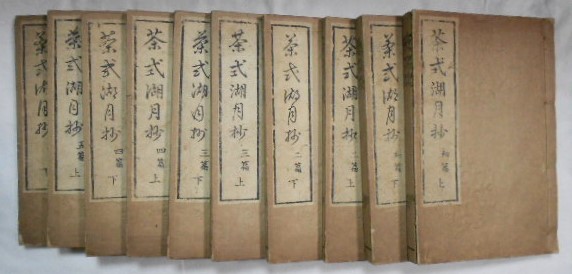 茶式湖月抄 初篇 上
茶式湖月抄 初篇 下
茶式湖月抄 篇 上
茶式湖月抄 二篇 下
茶式湖月抄 三篇 上
茶式湖月抄 三篇 下
茶式湖月抄 四篇 上
茶式湖月抄 四篇 下
茶式湖月抄 五篇 上
茶式湖月抄 下